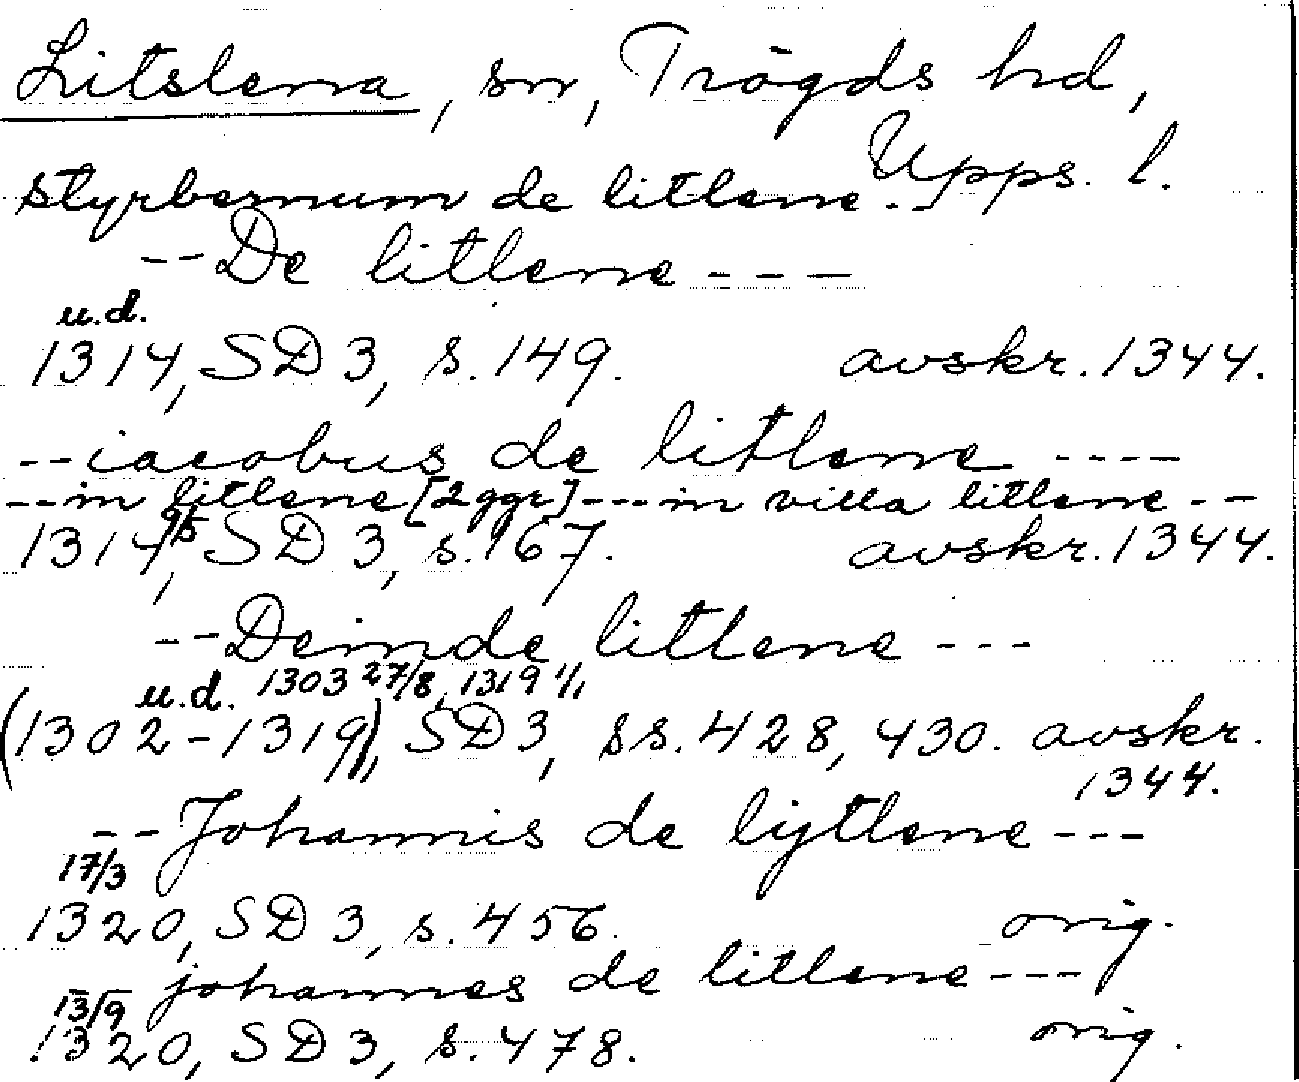 Litslena, sn, Trögds hd,
Upps. l.
styrbernum de litlene. --
-- De litlene ---
u.d.
1314, SD 3, s. 149. avskr. 1344.
-- iacobus de litlene ----
-- in litlene [2 ggr] --- in villa litlene --
9/5
1314, SD 3, s. 167. avskr. 1344.
-- Deinde litlene ---
u.d. 1303 27/8, 1319 1/1
(1302-1319), SD 3, ss. 428, 430. avskr.
1344.
-- Johannis de lijtlene ---
17/3
1320, SD 3, s. 456. orig.
johannes de litlene ---
13/9
1320, SD 3, s. 478. orig.